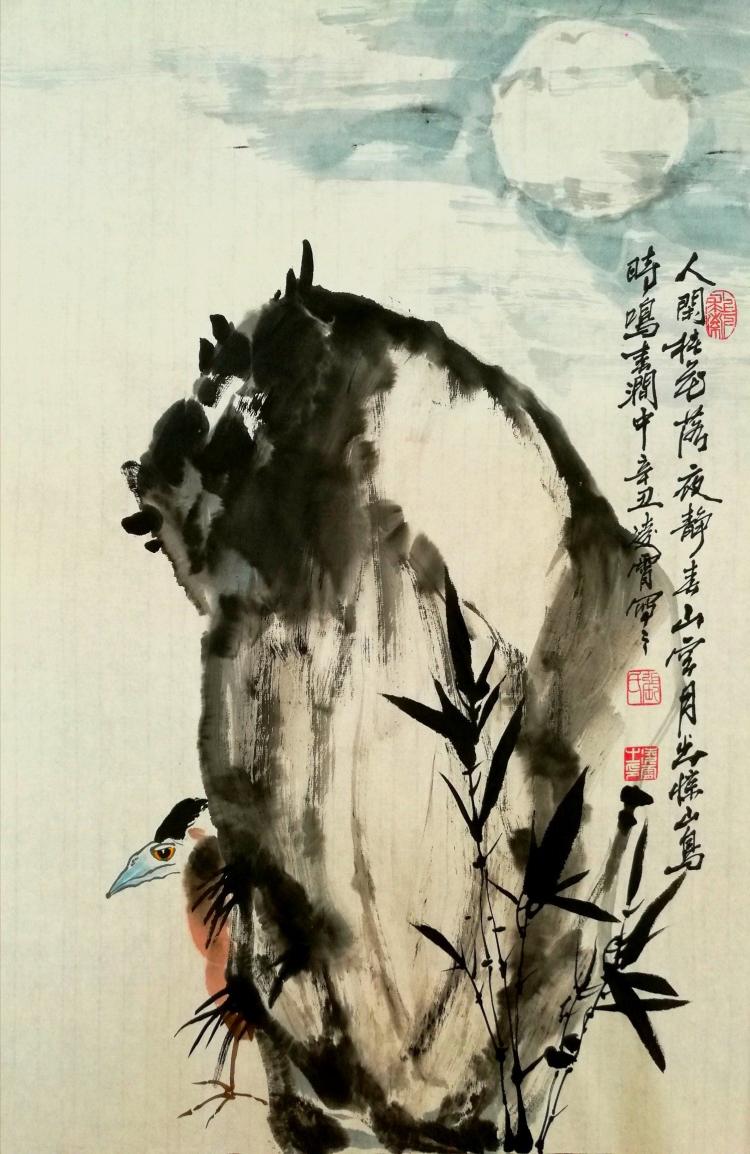 人閒桂花落夜静春山空月出惊山鳥
時鳴春澗中辛丑凌霄寫之
張氏